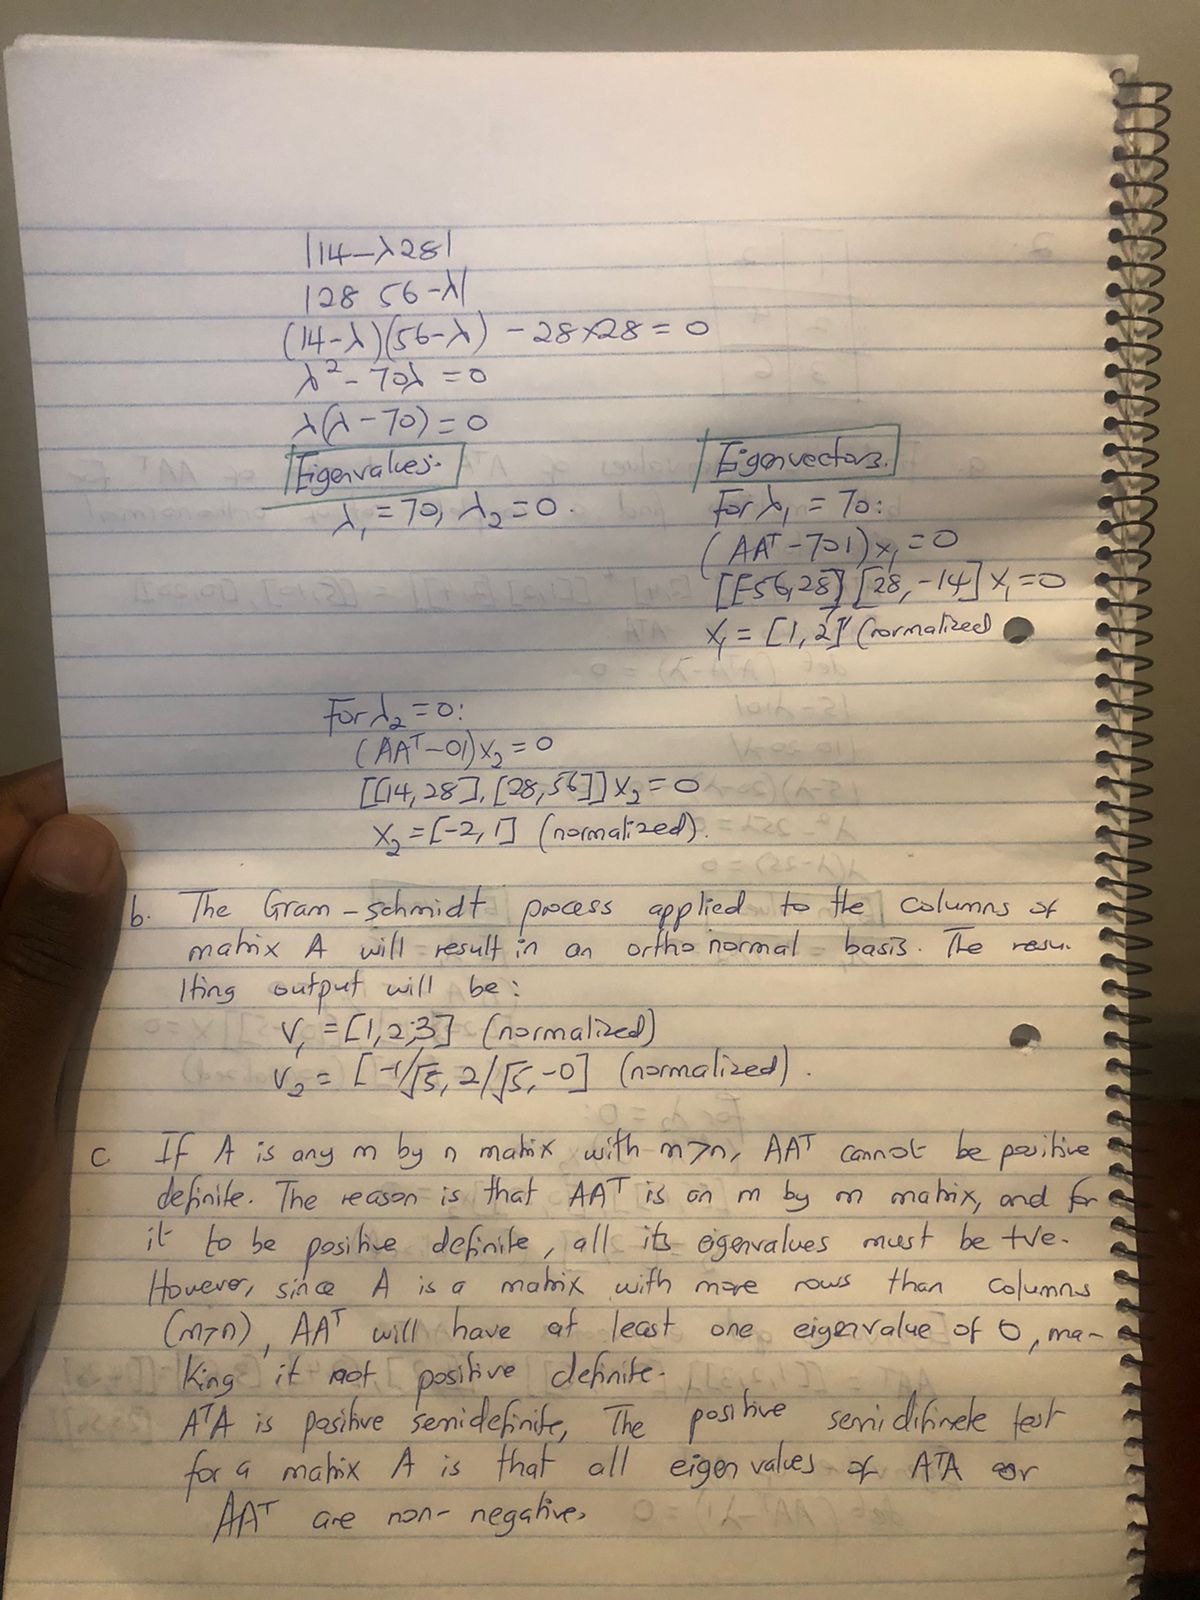 |14-λ 28|
|28 56-λ|
(14-λ)(56-λ) - 28×28 = 0
λ² - 70λ = 0
λ(λ-70) = 0
Eigenvalues.
λ₁ = 70, λ₂ = 0.
Eigenvectors.
For λ₁ = 70:
(AAᵀ - 70I)x₁ = 0
[[-56, 28] [28, -14] x₁ = 0
x₁ = [1, 2] (normalized
For λ₂ = 0:
(AAᵀ - 0I)x₂ = 0
[[14, 28], [28, 56]] x₂ = 0
x₂ = [-2, 1] (normalized).
b. The Gram-schmidt process applied to the columns of
matrix A will result in an orthonormal basis. The resu-
lting output will be:
V₁ = [1, 2, 3] (normalized)
V₂ = [-1/√5, 2/√5, -0] (normalized).
c. If A is any m by n matrix with m>n, AAᵀ cannot be positive
definite. The reason is that AAᵀ is an m by m matrix, and for
it to be positive definite, all its eigenvalues must be +ve.
However, since A is a matrix with more rows than columns
(m>n), AAᵀ will have at least one eigenvalue of 0, ma-
king it not positive definite.
AᵀA is positive semidefinite, The positive semi difinete test
for a matrix A is that all eigen values of AᵀA or
AAᵀ are non-negative.